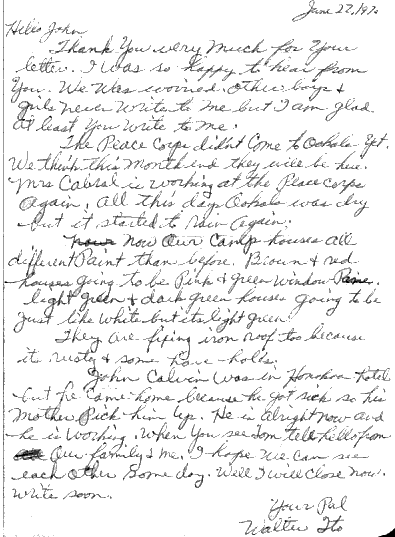 June 27, 197
Hello John
Thank You very Much for Your
letter. I was so happy to hear from
You. We was worried. Other boys &
girls never write to me but I am glad
at least You write to Me.
The Peace Corps didn't Come to Ookala Yet.
We think this Month end they will be here.
Mrs Cabral is working at the Peace corps
Again. All this day Ookala was dry
but it started to Rain Again.
Now Our Camp houses all
different Paint than before. Brown & red
houses going to be Pink & green window
light green & dark green houses going to be
Just like white but its light green.
They are fixing iron roof too because
its rusty & some have holes.
John Calvin was in Honokaa Hotel
but he Came home because he got sick so his
Mother Pick him Up. He is alright now and
he is working. When You see Tom tell hello from
Our family & me. I hope We Can see
each other some day. Well I will close Now.
Write soon.
Your Pal
Walter Ito